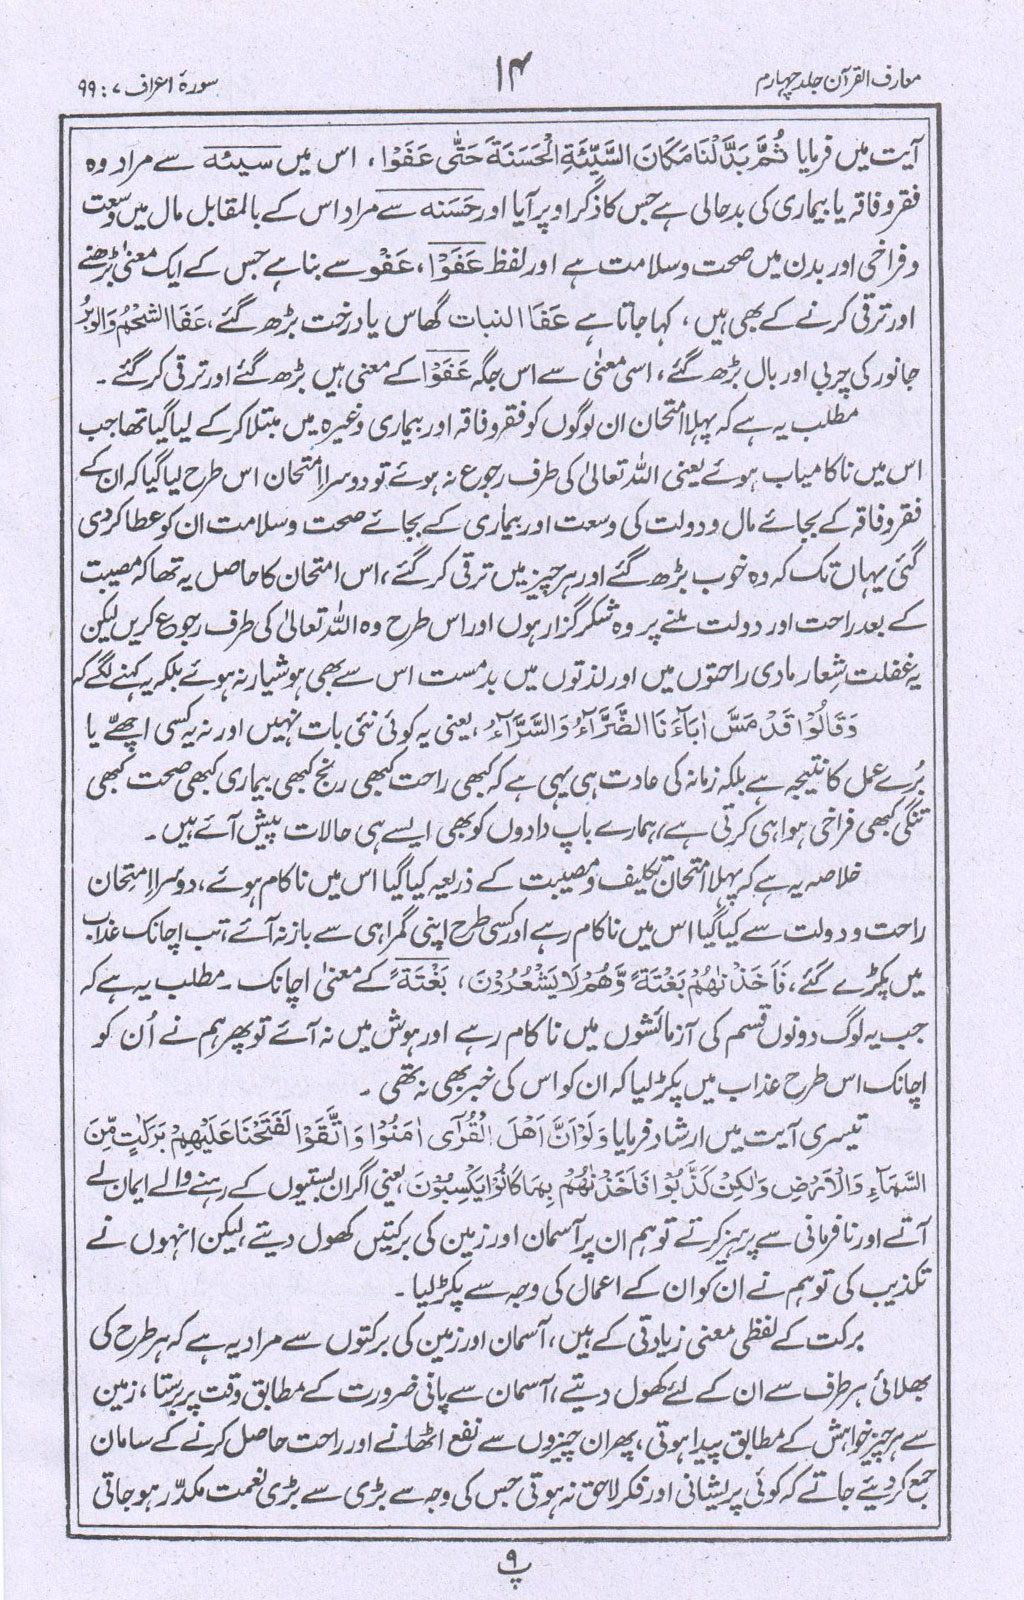 معارف القرآن جلد چہارم
۱۴
سورۂ اعراف ۷ : ۹۹
آیت میں فرمایا ثُمَّ بَدَّلْنَا مَكَانَ السَّيِّئَةِ الْحَسَنَةَ حَتّٰى عَفَوْا، اس میں سیئہ سے مراد وہ
فقر و فاقہ یا بیماری کی بدحالی ہے جس کا ذکر اوپر آیا اور حَسَنہ سے مراد اس کے بالمقابل مال میں وسعت
و فراخی اور بدن میں صحت و سلامت ہے اور لفظ عَفَوْا، عَفْو سے بنا ہے جس کے ایک معنیٰ بڑھنے
اور ترقی کرنے کے بھی ہیں، کہا جاتا ہے عَفَا النبات گھاس یا درخت بڑھ گئے، عَفَا الشَّحْمُ وَالْوَبَرُ
جانور کی چربی اور بال بڑھ گئے، اسی معنیٰ سے اس جگہ عَفَوْا کے معنی ہیں بڑھ گئے اور ترقی کر گئے۔
مطلب یہ ہے کہ پہلا امتحان ان لوگوں کو فقر و فاقہ اور بیماری وغیرہ میں مبتلا کر کے لیا گیا تھا جب
اس میں ناکامیاب ہوئے یعنی اللہ تعالیٰ کی طرف رجوع نہ ہوئے تو دوسرا امتحان اس طرح لیا گیا کہ ان کے
فقر و فاقہ کے بجائے مال و دولت کی وسعت اور بیماری کے بجائے صحت و سلامت ان کو عطا کر دی
گئی یہاں تک کہ وہ خوب بڑھ گئے اور ہر چیز میں ترقی کر گئے، اس امتحان کا حاصل یہ تھا کہ مصیبت
کے بعد راحت اور دولت ملنے پر وہ شکر گزار ہوں اور اس طرح وہ اللہ تعالیٰ کی طرف رجوع کریں لیکن
یہ غفلت شِعار مادی راحتوں میں اور لذتوں میں بدمست اس سے بھی ہوشیار نہ ہوئے بلکہ یہ کہنے لگے کہ
وَقَالُوْا قَدْ مَسَّ اٰبَآءَنَا الضَّرَّآءُ وَالسَّرَّآءُ، یعنی یہ کوئی نئی بات نہیں اور نہ یہ کسی اچھے یا
بُرے عمل کا نتیجہ ہے بلکہ زمانہ کی عادت ہی یہی ہے کہ کبھی راحت کبھی رنج کبھی بیماری کبھی صحت کبھی
تنگی کبھی فراخی ہوا ہی کرتی ہے، ہمارے باپ دادوں کو بھی ایسے ہی حالات پیش آئے ہیں۔
خلاصہ یہ ہے کہ پہلا امتحان تکلیف و مصیبت کے ذریعہ کیا گیا اس میں ناکام ہوئے، دوسرا امتحان
راحت و دولت سے کیا گیا اس میں ناکام رہے اور کسی طرح اپنی گمراہی سے باز نہ آئے تب اچانک عذاب
میں پکڑے گئے، فَاَخَذْنٰهُمْ بَغْتَةً وَّهُمْ لَا يَشْعُرُوْنَ، بَغْتَةً کے معنیٰ اچانک۔ مطلب یہ ہے کہ
جب یہ لوگ دونوں قسم کی آزمائشوں میں ناکام رہے اور ہوش میں نہ آئے تو پھر ہم نے اُن کو
اچانک اس طرح عذاب میں پکڑ لیا کہ ان کو اس کی خبر بھی نہ تھی۔
تیسری آیت میں ارشاد فرمایا وَلَوْ اَنَّ اَهْلَ الْقُرٰٓى اٰمَنُوْا وَاتَّقَوْا لَفَتَحْنَا عَلَيْهِمْ بَرَكٰتٍ مِّنَ
السَّمَآءِ وَالْاَرْضِ وَلٰكِنْ كَذَّبُوْا فَاَخَذْنٰهُمْ بِمَا كَانُوْا يَكْسِبُوْنَ، یعنی اگر ان بستیوں کے رہنے والے ایمان لے
آتے اور نافرمانی سے پرہیز کرتے تو ہم ان پر آسمان اور زمین کی برکتیں کھول دیتے، لیکن انہوں نے
تکذیب کی تو ہم نے ان کو ان کے اعمال کی وجہ سے پکڑ لیا۔
برکت کے لفظی معنی زیادتی کے ہیں، آسمان اور زمین کی برکتوں سے مراد یہ ہے کہ ہر طرح کی
بھلائی ہر طرف سے ان کے لئے کھول دیتے، آسمان سے پانی ضرورت کے مطابق وقت پر برستا، زمین
سے ہر چیز خواہش کے مطابق پیدا ہوتی، پھر ان چیزوں سے نفع اٹھانے اور راحت حاصل کرنے کے سامان
جمع کر دیئے جاتے کہ کوئی پریشانی اور فکر لاحق نہ ہوتی جس کی وجہ سے بڑی سے بڑی نعمت مکدّر ہو جاتی
پ ۹